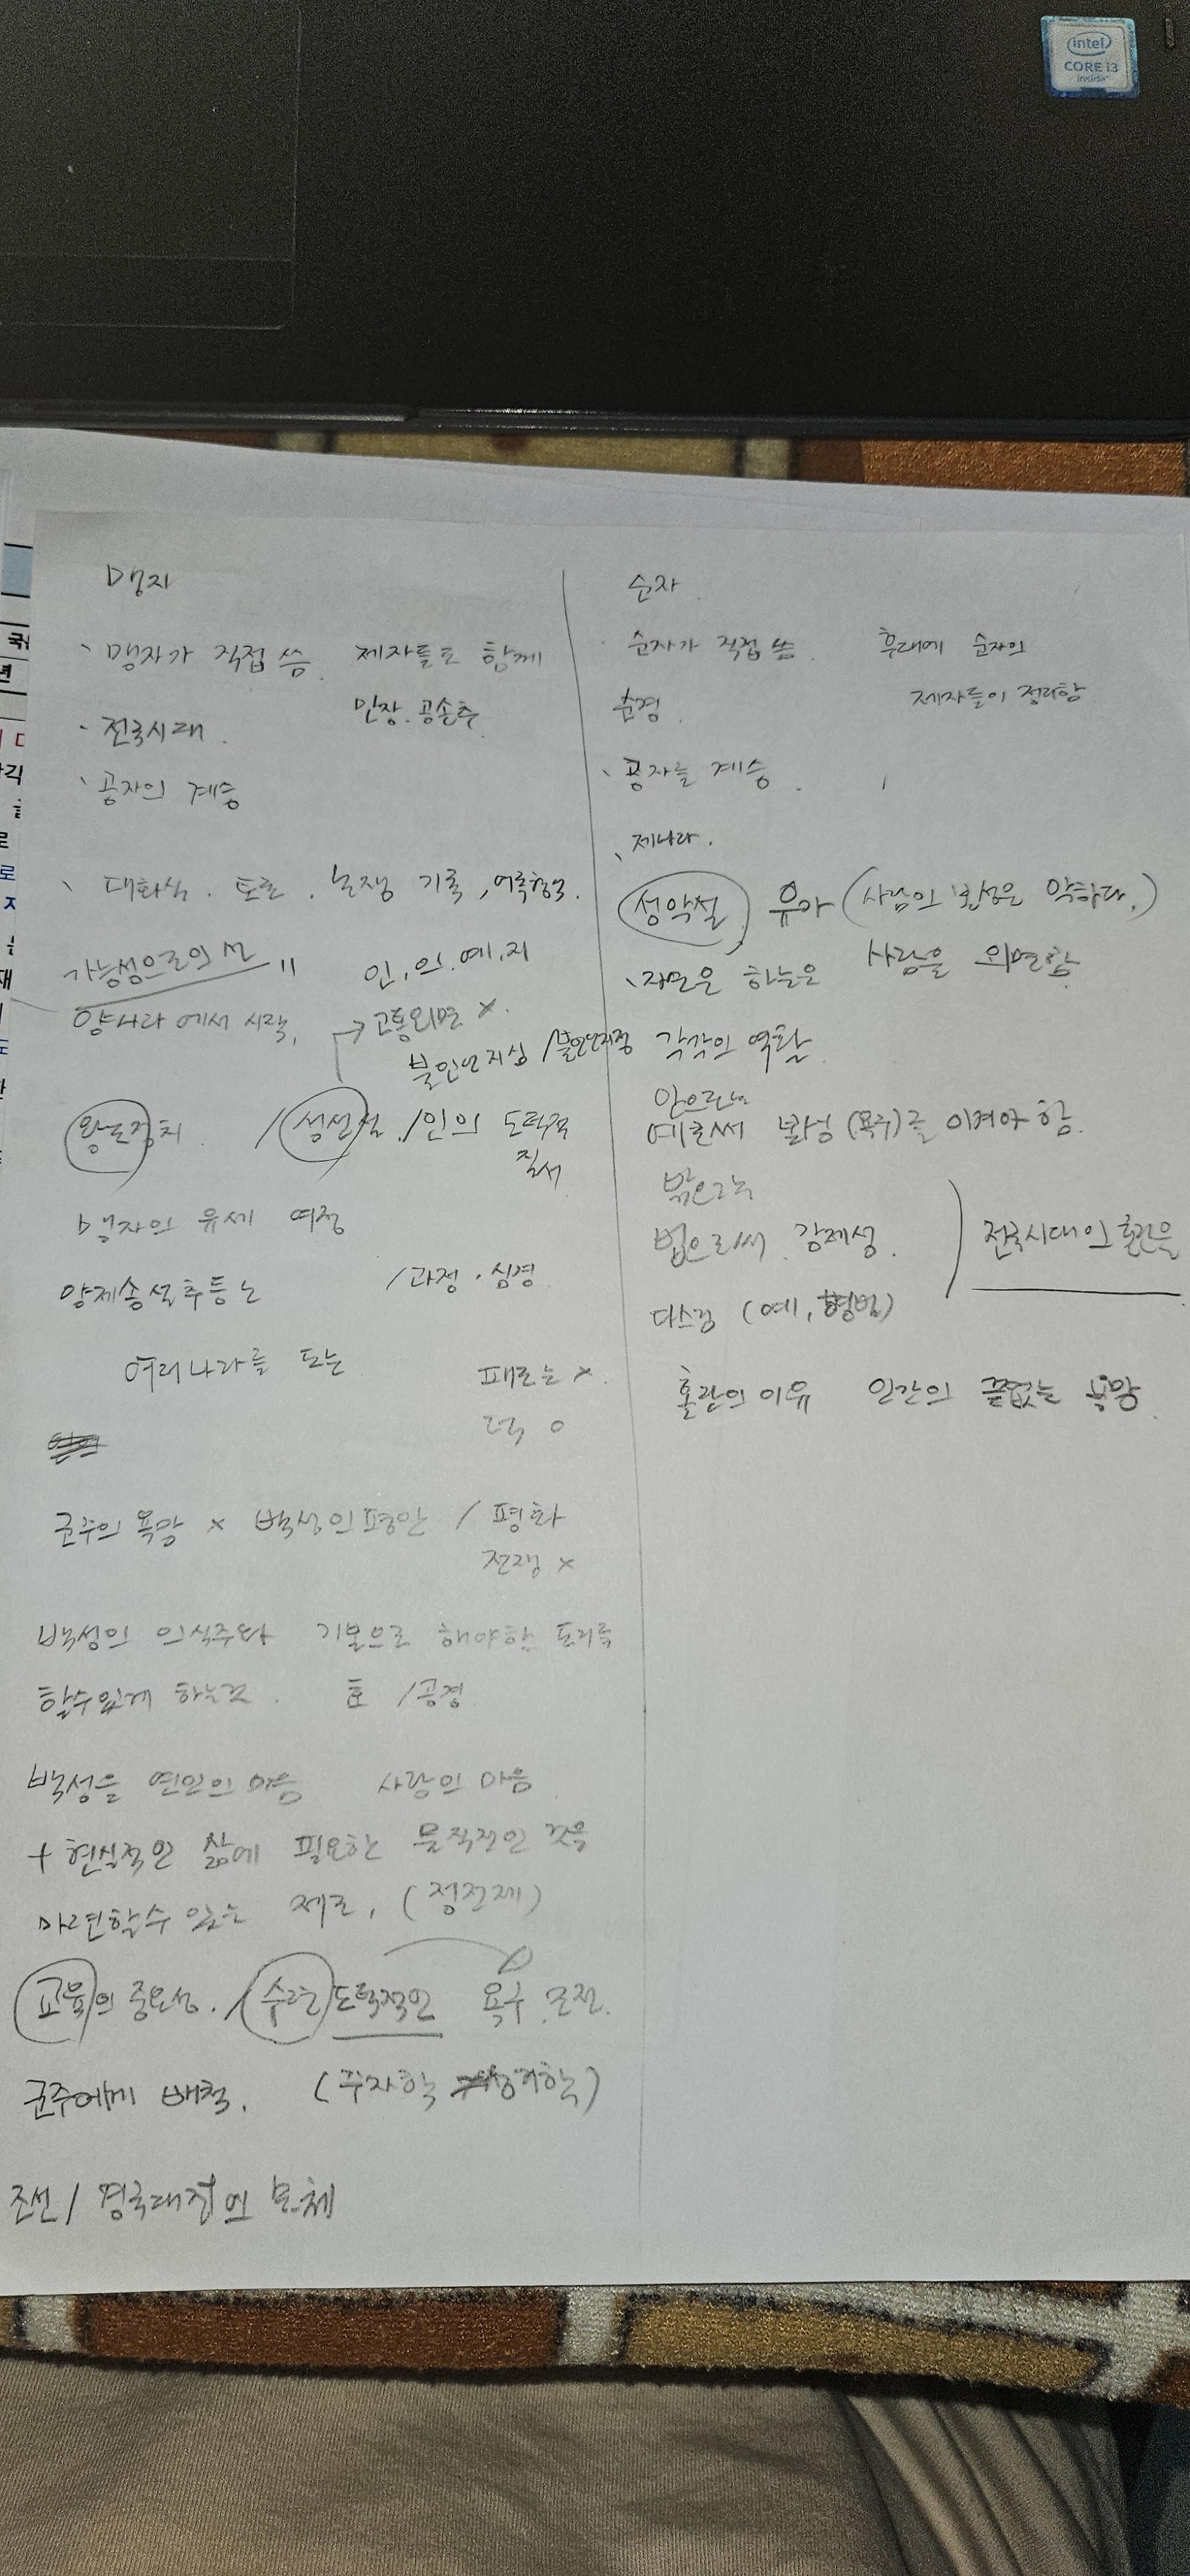 intel
CORE i3
inside
맹자
맹자가 직접 씀. 제자들도 함께
만장. 공손추
전국시대.
공자의 계승
대화식. 토론. 논쟁 기록, 어록형식.
가능성으로의 선 인, 의, 예, 지
양나라에서 시작, → 고통외면 x.
불인인지심 / 불인인지정
왕도정치. / 성선설 / 인의 도덕적
질서
맹자의 유세 여정
양제송설추등노 / 과정. 심경
여러나라를 도는 패도는 x.
덕 o
군주의 욕망 x 백성의 평안 / 평화
전쟁 x
백성의 의식주와 기본으로 해야한 도리를
할수있게 하는것. 효 / 공경
백성을 연민의 마음 사랑의 마음
+ 현실적인 삶에 필요한 물질적인 것을
마련할수 있는 제도, (정전제)
교육의 중요성. / 수련 도덕적인 욕구
군주에게 배척. (주자학 성리학)
조선 / 경국대전의 모체
순자
순자가 직접 씀. 후대에 순자의
제자들이 정리함
순경.
공자를 계승.
제나라.
성악설 유가 (사람의 본성은 악하다.)
하늘은 사람을 외면함
각각의 역할
안으로는
예로써 본성 (욕구)를 이겨야 함.
밖으로는
법으로써 강제성. 전국시대의 혼란을
다스림 (예, 형벌)
혼란의 이유 인간의 끝없는 욕망.